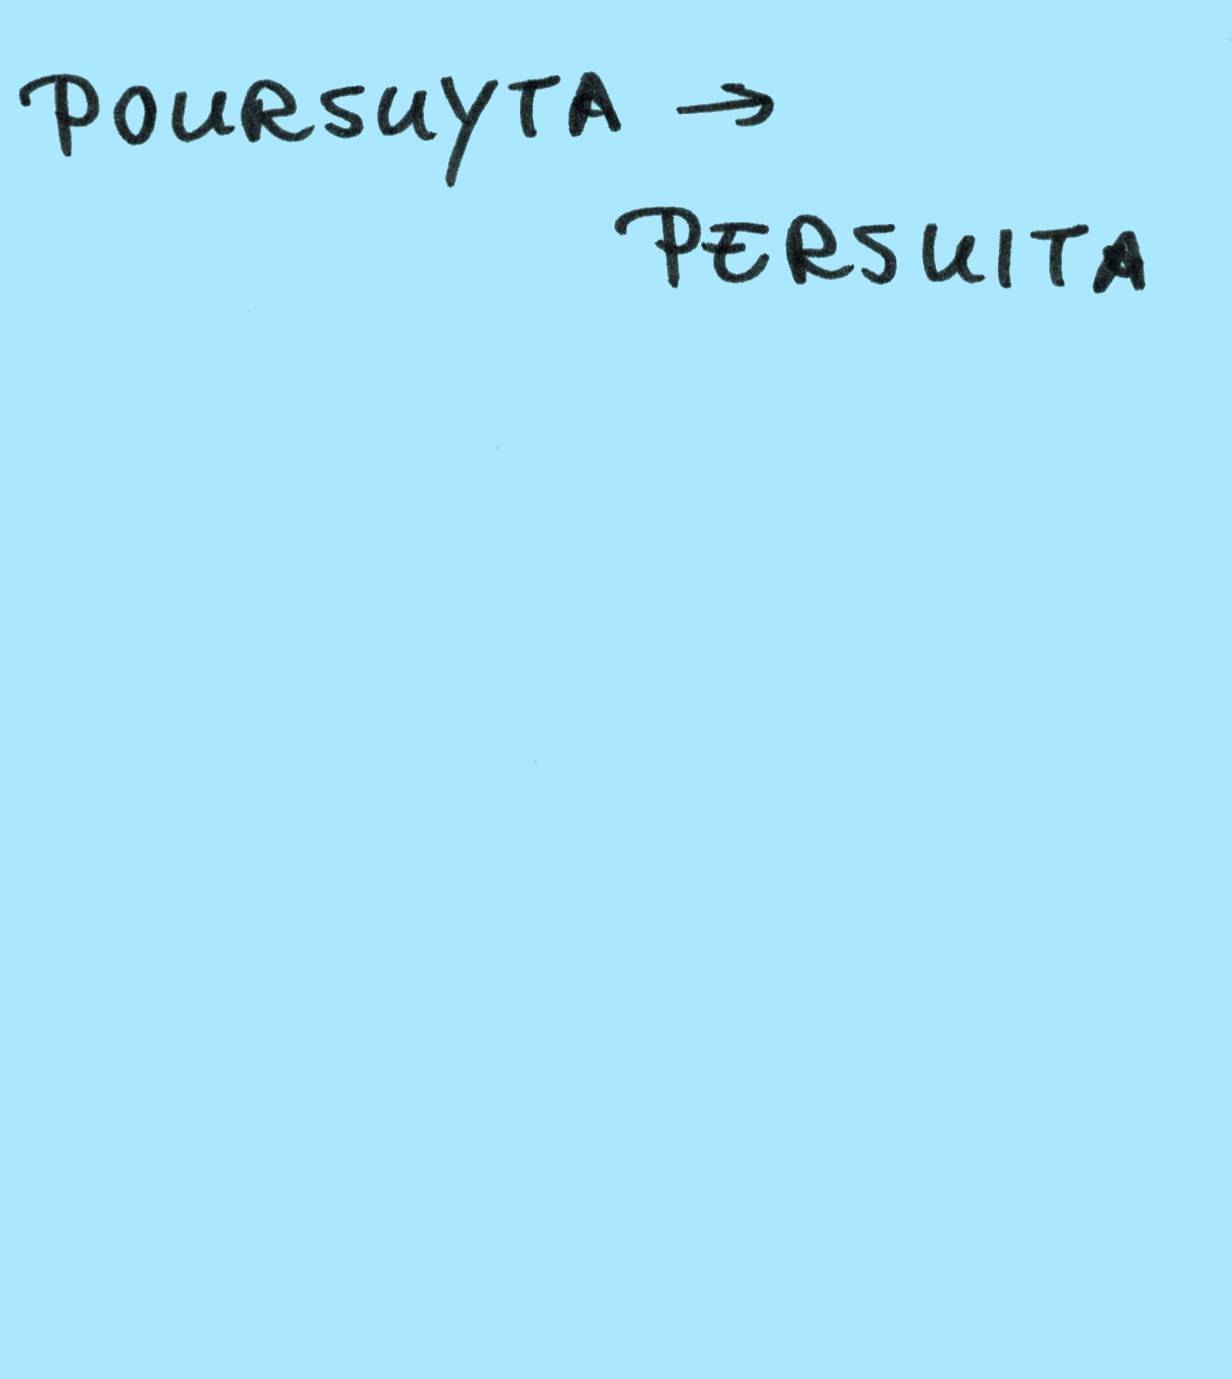 POURSUYTA →
PERSUITA